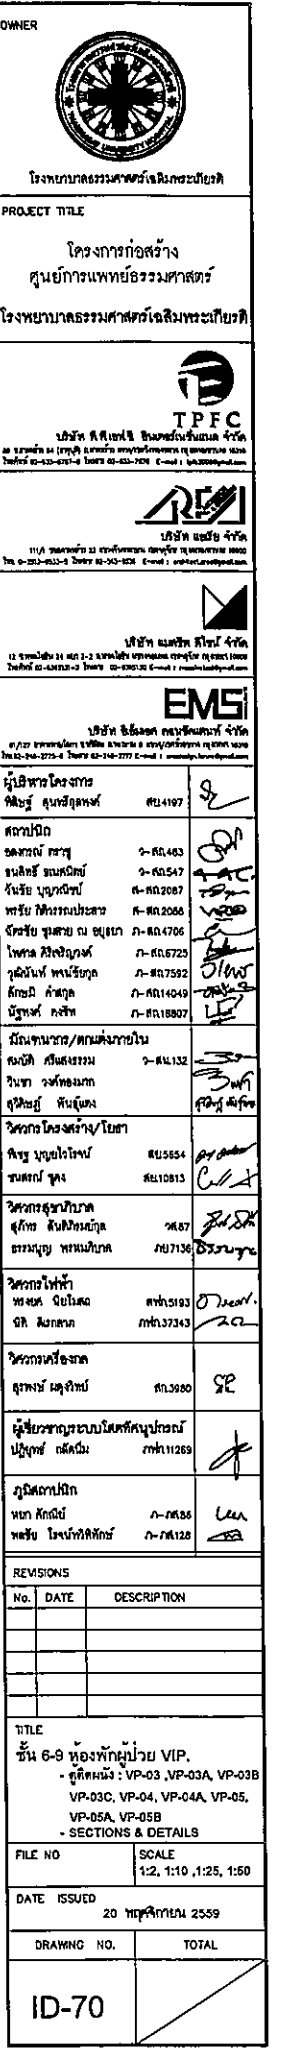 OWNER
THAMMASAT UNIVERSITY HOSPITAL
โรงพยาบาลธรรมศาสตร์เฉลิมพระเกียรติ
PROJECT TITLE
โครงการก่อสร้าง
ศูนย์การแพทย์ธรรมศาสตร์
โรงพยาบาลธรรมศาสตร์เฉลิมพระเกียรติ
TPFC
บริษัท ที.พี.เอฟ.ซี อินเตอร์เนชั่นแนล จำกัด
บริษัท จำกัด
บริษัท แมททริค ดีไซน์ จำกัด
EMSi
บริษัท อีเอ็มเอส คอนซัลแตนท์ จำกัด
ผู้บริหารโครงการ
พิศิษฐ์ สย.4197
สถาปนิก
ว-สถ.463
ว-สถ.547
วันชัย บุญวณิชย์ ส-สถ.2087
พรชัย กิติวรรณประสาร ส-สถ.2088
ฉัตรชัย ชุมสาย ณ อยุธยา ภ-สถ.4706
ไพศาล ภ-สถ.6725
วุฒินันท์ ภ-สถ.7592
ลักษมี ภ-สถ.14049
ณัฐพงศ์ คงชีพ ภ-สถ.18807
มัณฑนากร/ตกแต่งภายใน
สมบัติ ศรีแสงธรรม ว-สน.132
วินชา วงศ์ทองมาก
สุวิศิษฎ์ พันธุ์แดง
วิศวกรโครงสร้าง/โยธา
พิเชฐ บุญยไวโรจน์ สย.5654
ชนสรณ์ ชูคง สย.10813
วิศวกรสุขาภิบาล
สุภัทร ตันติภิรมย์กุล วส.87
ธรรมนูญ พรหมภิบาล ภย.7136
วิศวกรไฟฟ้า
ทรงยศ นิยโมสถ สฟก.5193
นิติ ดิเรกลาภ ภฟก.37343
วิศวกรเครื่องกล
สุรพงษ์ ผดุงวิทย์ สก.3980
ผู้เชี่ยวชาญระบบโสตทัศนูปกรณ์
ปฏิยุทธ์ กลัดนิ่ม ภฟก.11269
ภูมิสถาปนิก
หยก ภักณีย์ ภ-ภส.86
พลชัย โรจน์ทวิพิทักษ์ ภ-ภส.128
REVISIONS
No. DATE DESCRIPTION
TITLE
ชั้น 6-9 ห้องพักผู้ป่วย VIP.
- ตู้ติดผนัง : VP-03 ,VP-03A, VP-03B
VP-03C, VP-04, VP-04A, VP-05,
VP-05A, VP-05B
- SECTIONS & DETAILS
FILE NO SCALE
1:2, 1:10 ,1:25, 1:50
DATE ISSUED
20 พฤศจิกายน 2559
DRAWING NO. TOTAL
ID-70